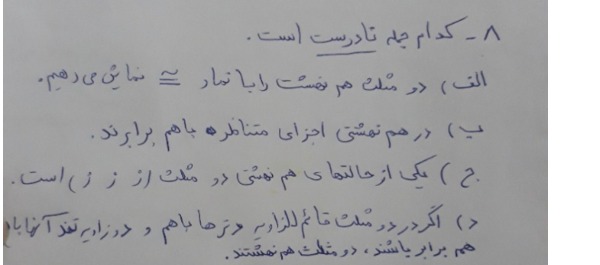 ۸ - کدام جمله نادرست است.
الف) دو مثلث هم نهشت را با نماد ≅ نمایش می دهیم.
ب) در هم نهشتی اجزای متناظر باهم برابرند.
ج) یکی از حالتهای هم نهشتی دو مثلث (ز ز ز) است.
د) اگر در دو مثلث قائم الزاویه وترها باهم و دو زاویه تند آنها با
هم برابر باشند، دو مثلث هم نهشتند.